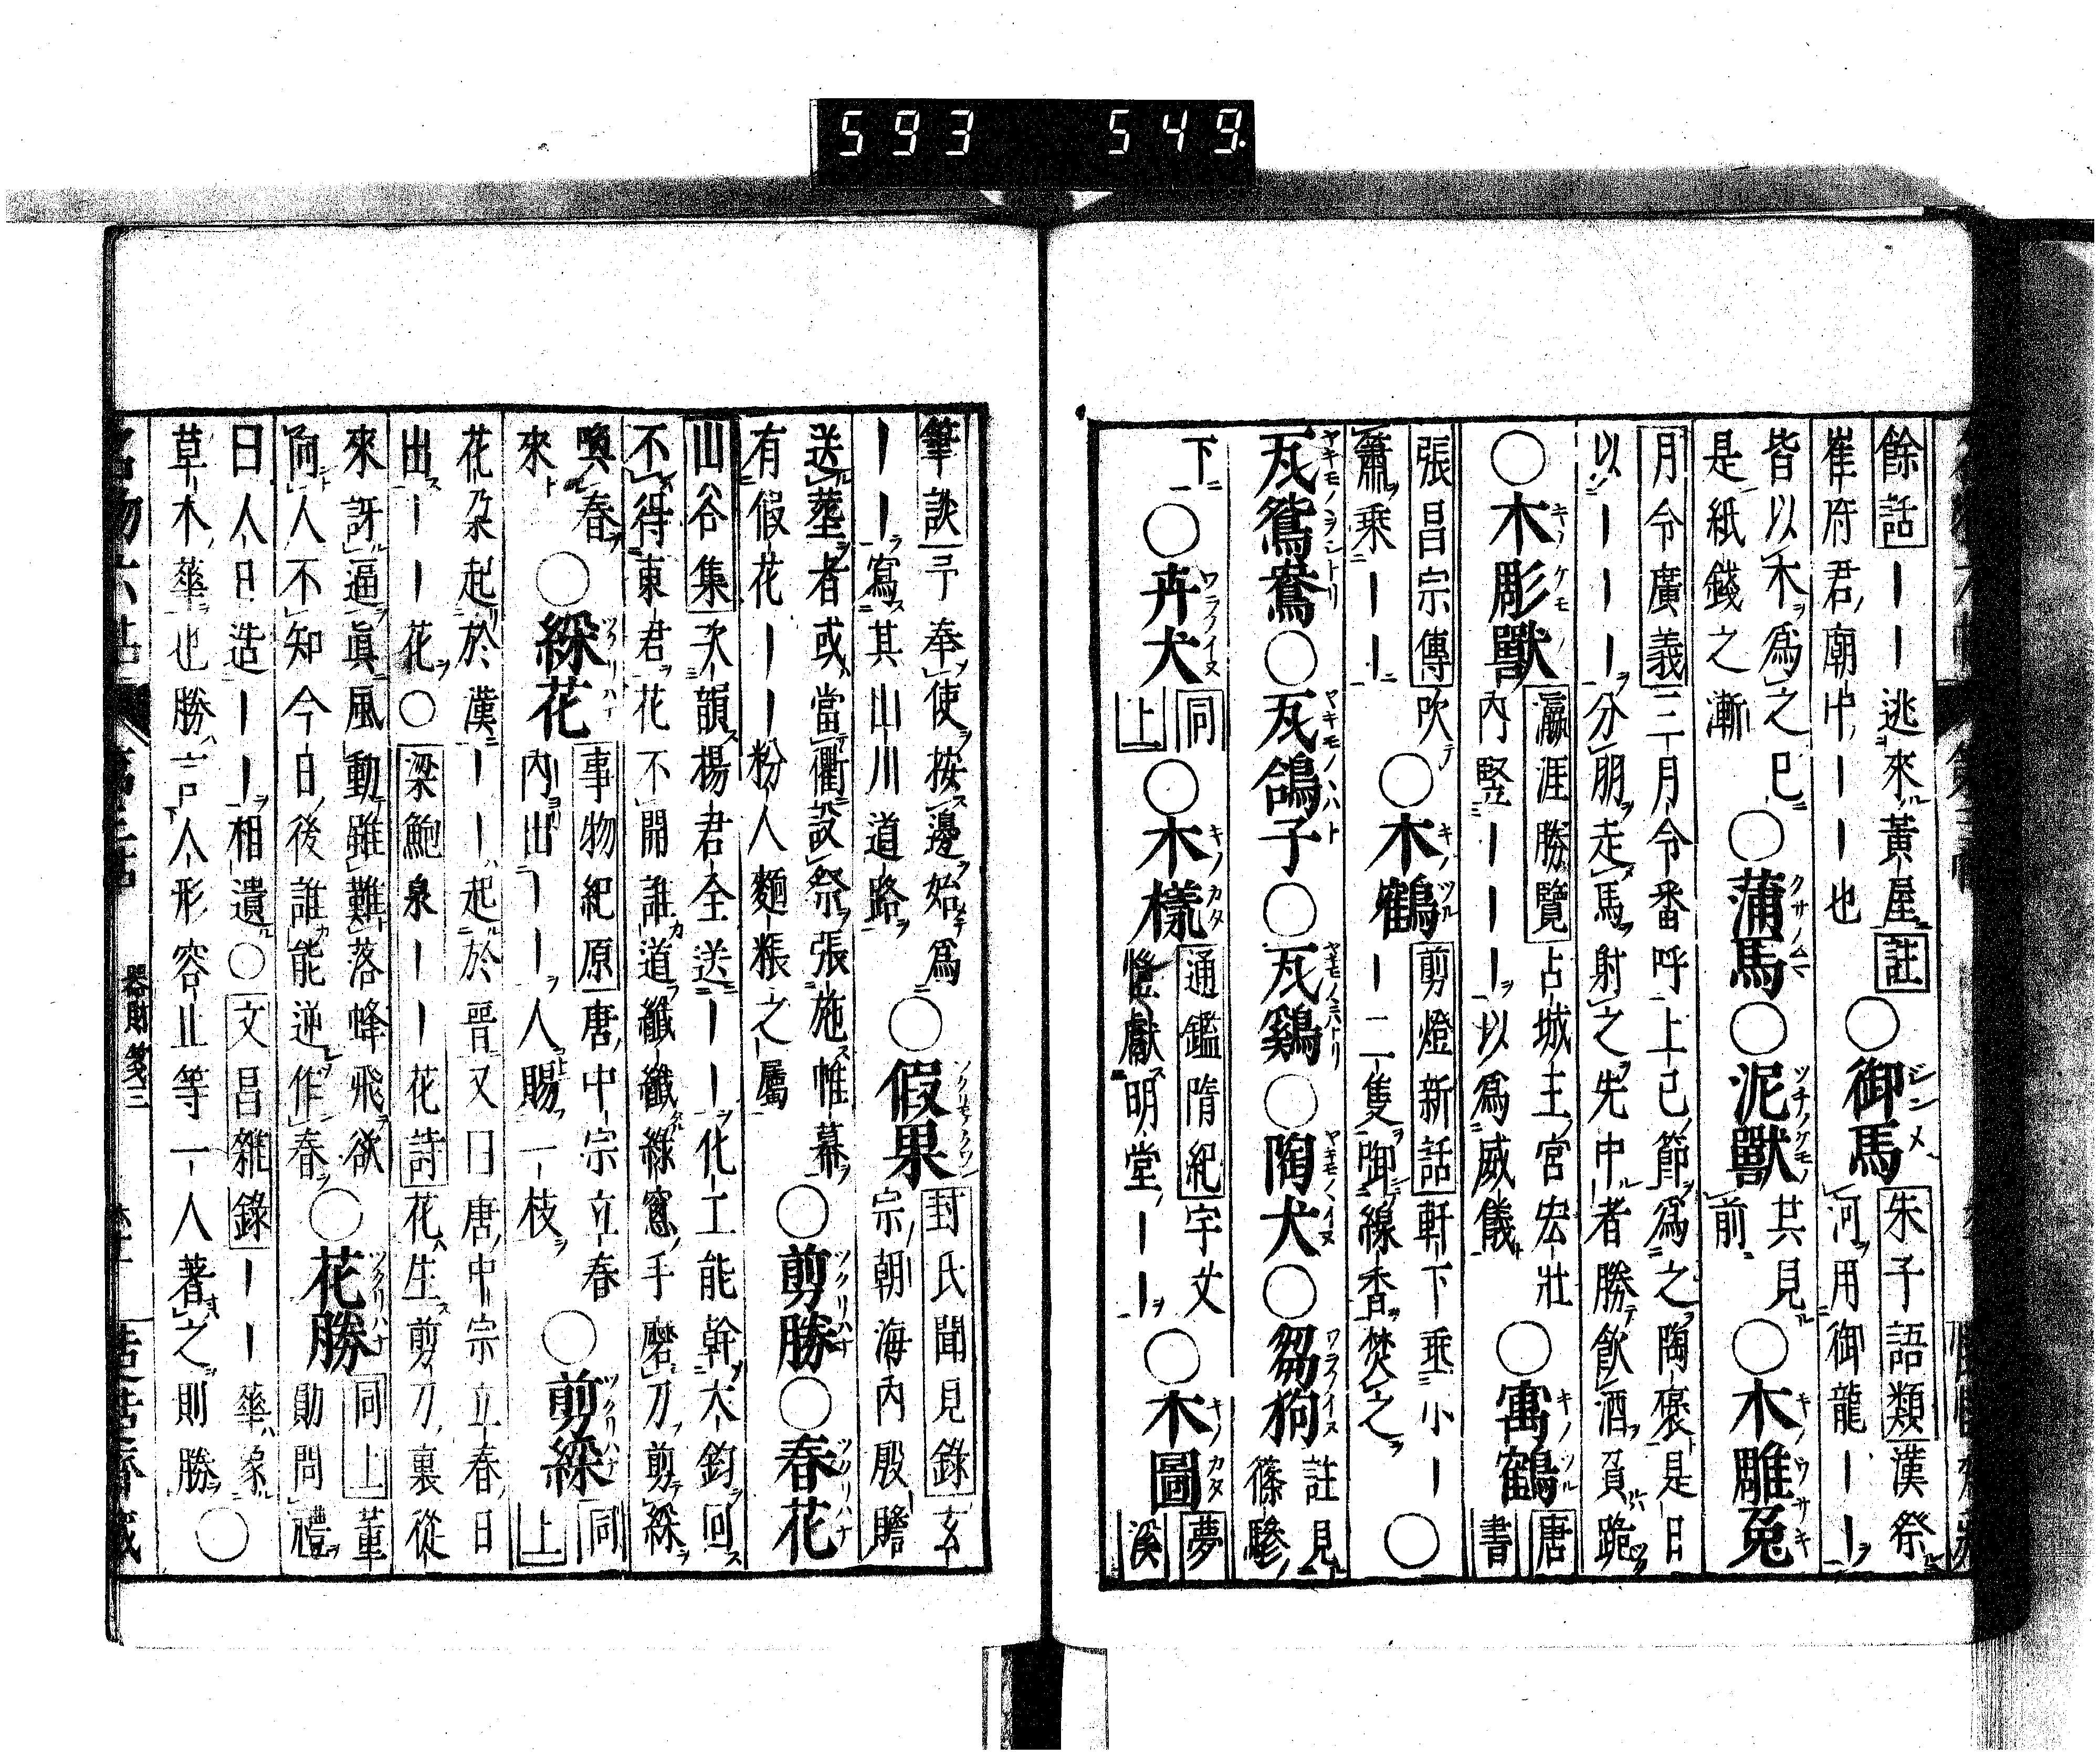 593 549.
餘話｜｜逃來黃屋註
崔府君廟中｜｜也
○御馬
朱子語類漢祭
河用御龍｜｜
皆以木爲之已
是紙錢之漸
○蒲馬○泥獸
其見
前
○木雕兎
月令廣義三月令番呼上已節爲之陶褒是日
以｜｜｜分朋走馬射之先中者勝飮酒負跪
○木彫獸
瀛涯勝覽占城王宮宏壯
內竪｜｜｜以爲威儀
○寓鶴
唐
書
張昌宗傳吹
簫乘｜｜
○木鶴
剪燈新話軒下乗小｜
｜二隻御線香焚之
○
瓦鴛鴦○瓦鴿子○瓦鷄○陶犬○芻狗
註見
篠驂
下
○卉犬
同
上
○木樣
通鑑隋紀宇文
愷獻明堂｜｜
○木圖
夢
溪
筆談予奉使按邊始爲
｜｜寫其山川道路
○假果
封氏聞見錄玄
宗朝海內殷贍
送塟者或當衢設祭張施帷幕
有假花｜｜粉人麵粻之屬
○剪勝○春花
山谷集次韻楊君全送｜｜化工能幹大鈞回
不得東君花不開誰道纖纖綠窓手磨刀剪綵
喚春
來
○綵花
事物紀原唐中宗立春
內出｜｜人賜一枝
○剪綵
同
上
花朶起於漢｜｜起於晉又曰唐中宗立春日
出｜｜花○梁鮑泉｜｜花詩花生剪刀裏從
來訝逼眞風動雖難落蜂飛欲
向人不知今日後誰能逆作春
○花勝
同上董
勛問禮
日人日造｜｜相遺○文昌雜錄｜｜華象
草木華也勝言人形容止等一人著之則勝
○
器財箋三